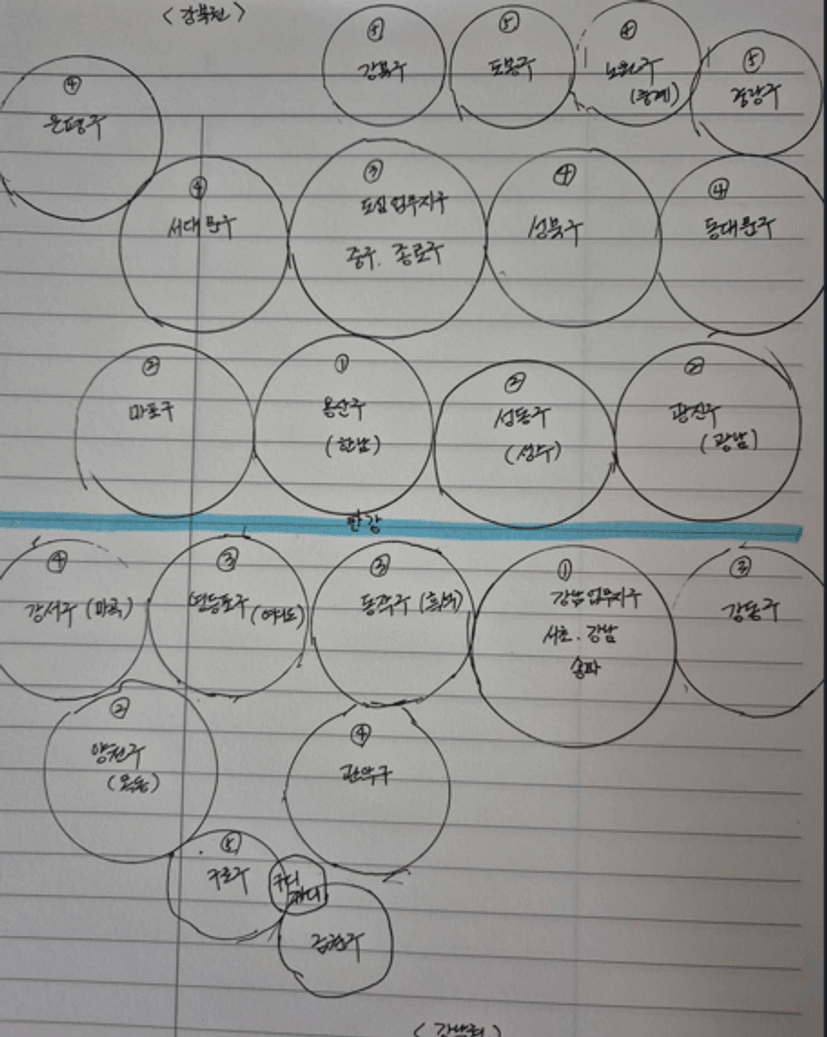 <강북권>
⑤
강북구
⑤
도봉구
④
노원구
(중계)
⑤
중랑구
④
은평구
④
서대문구
③
도심업무지구
중구. 종로구
④
성북구
④
동대문구
②
마포구
①
용산구
(한남)
②
성동구
(성수)
②
광진구
(광남)
한강
④
강서구 (마곡)
③
영등포구 (여의도)
③
동작구 (흑석)
①
강남업무지구
서초. 강남
송파
③
강동구
②
양천구
(목동)
④
관악구
⑤
구로구
구디
가디
금천구
<강남권>